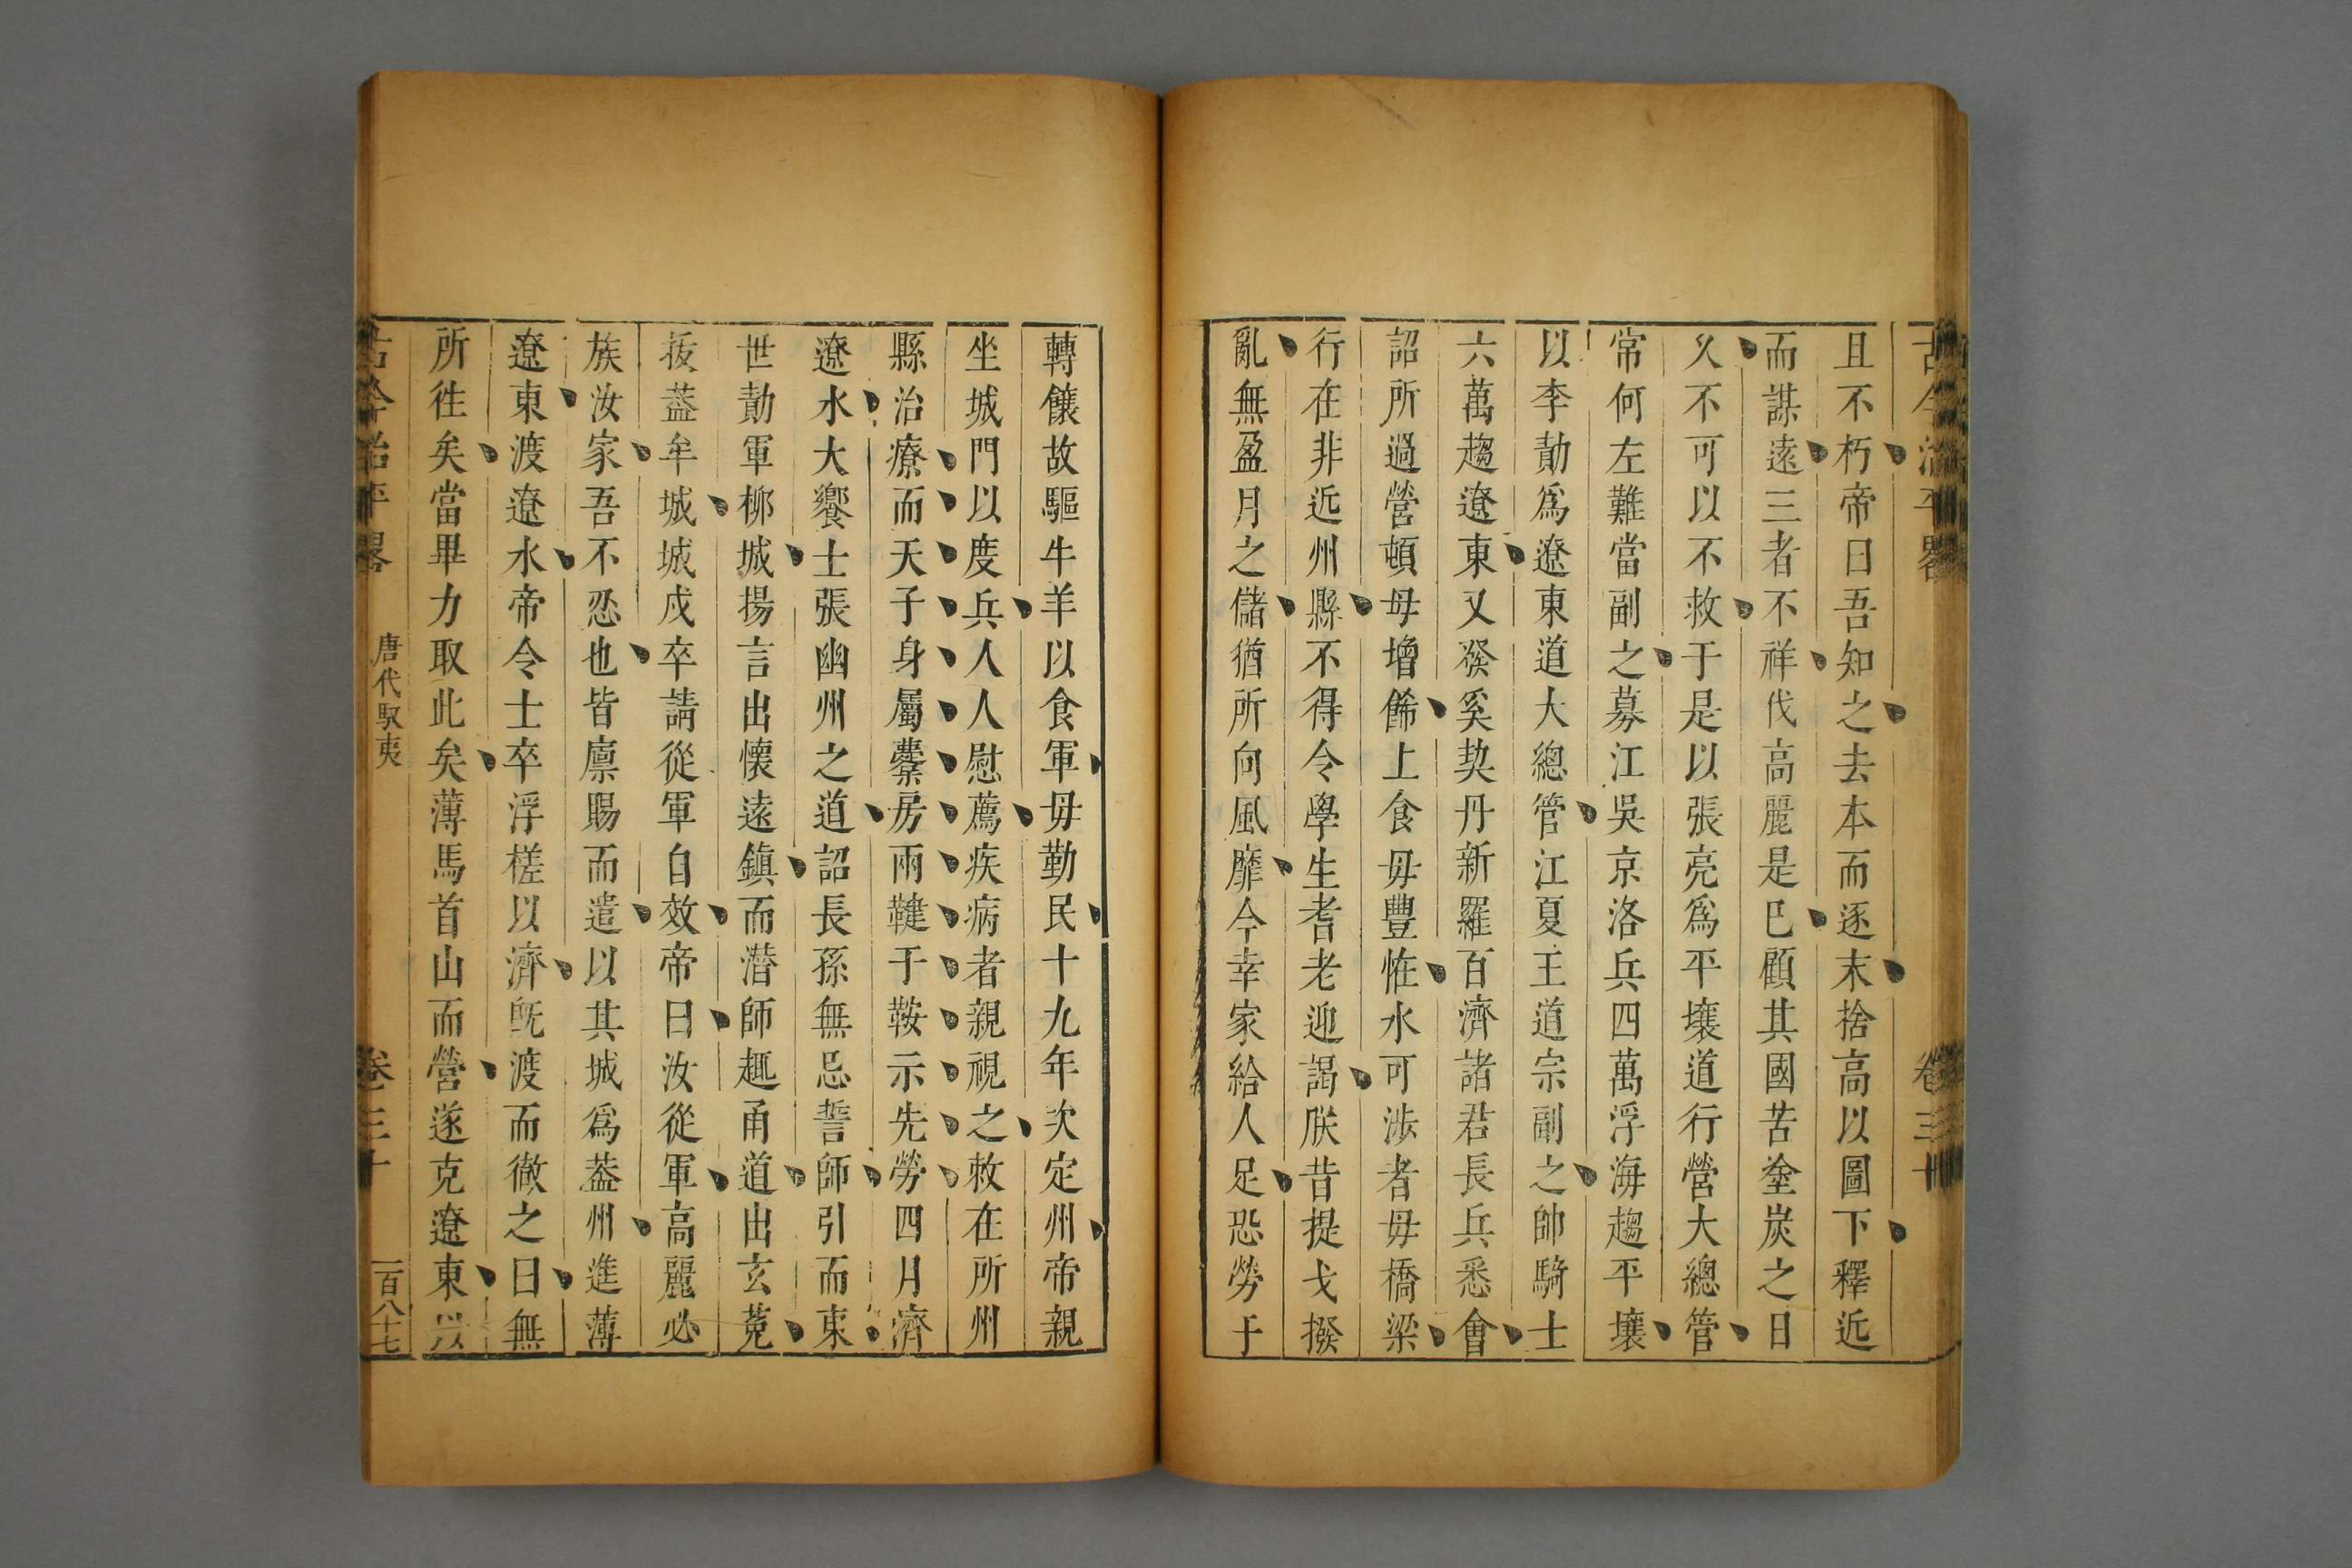 古今治平畧 卷三十
且不朽帝曰吾知之去本而逐末捨高以圖下釋近
而謀遠三者不祥伐高麗是已顧其國苦塗炭之日
久不可以不救于是以張亮爲平壤道行營大總管
常何左難當副之募江吳京洛兵四萬浮海趨平壤
以李勣爲遼東道大總管江夏王道宗副之帥騎士
六萬趨遼東又發奚契丹新羅百濟諸君長兵悉會
詔所過營頓毋增餙上食毋豐恠水可涉者毋橋梁
行在非近州縣不得令學生耆老迎謁朕昔提戈撥
亂無盈月之儲猶所向風靡今幸家給人足恐勞于
轉饟故驅牛羊以食軍毋勤民十九年次定州帝親
坐城門以度兵人人慰薦疾病者親視之敕在所州
縣治療而天子身屬櫜房兩鞬于鞍示先勞四月濟
遼水大饗士張幽州之道詔長孫無忌誓師引而東
世勣軍柳城揚言出懷遠鎮而潛師趣甬道出玄菟
拔葢牟城城戍卒請從軍自效帝曰汝從軍高麗必
族汝家吾不忍也皆廩賜而遣以其城爲葢州進薄
遼東渡遼水帝令士卒浮槎以濟旣渡而徹之曰無
所徃矣當畢力取此矣薄馬首山而營遂克遼東以
古今治平畧 唐代馭夷 卷三十 一百八十七